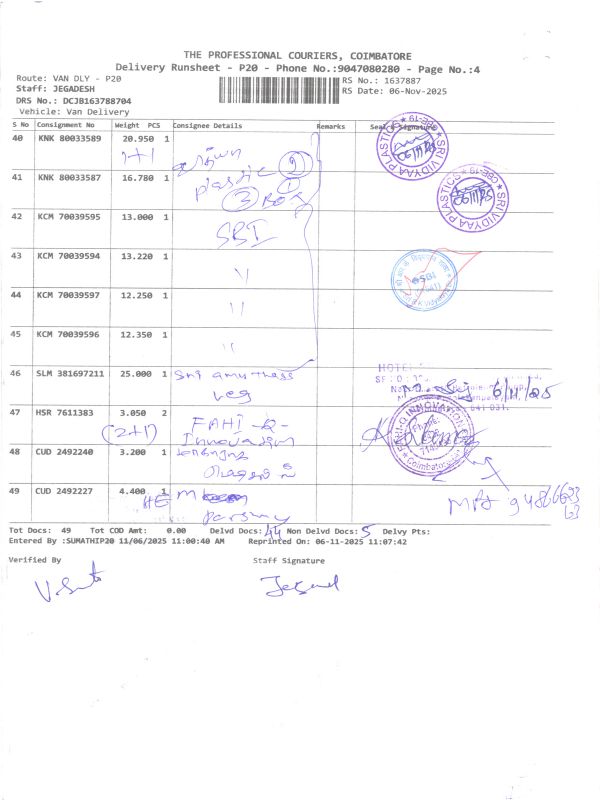 THE PROFESSIONAL COURIERS, COIMBATORE
Delivery Runsheet - P20 - Phone No.:9047080280 - Page No.:4
Route: VAN DLY - P20
RS No.: 1637887
Staff: JEGADESH
RS Date: 06-Nov-2025
DRS No.: DCJB163788704
Vehicle: Van Delivery
S No Consignment No Weight PCS Consignee Details Remarks Seal & Signature
40 KNK 80033589 20.950 1
1+1
plastic
41 KNK 80033587 16.780 1
BOX
SRI VIDYAA PLASTICS * CBE-19 *
06/11/25
SRI VIDYAA PLASTICS * CBE-19 *
06/11/25
42 KCM 70039595 13.000 1
SBI
43 KCM 70039594 13.220 1
"
SBI
44 KCM 70039597 12.250 1
"
45 KCM 70039596 12.350 1
"
46 SLM 381697211 25.000 1 Sri amuthass
veg
HOTEL
641 031.
6/11/25
47 HSR 7611383 3.050 2
(2+1)
FAHI-R-
Innovation
INNOVATION
Phone:
Coimbatore
48 CUD 2492240 3.200 1
49 CUD 2492227 4.400 1
Tot Docs: 49 Tot COD Amt: 0.00 Delvd Docs: 44 Non Delvd Docs: 5 Delvy Pts:
Entered By :SUMATHIP20 11/06/2025 11:00:40 AM Reprinted On: 06-11-2025 11:07:42
Verified By Staff Signature